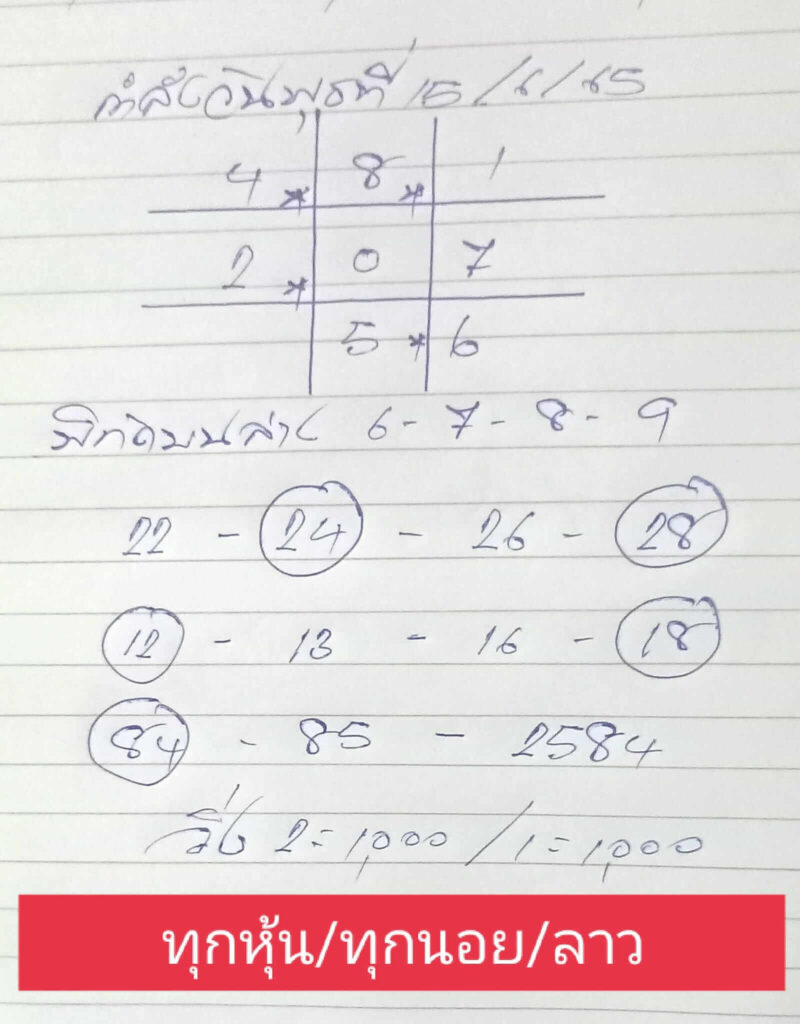 กำลังวันพุธที่ 15/6/65
4 * 8 * 1
2 * 0 7
5 * 6
พิกัดบนล่าง 6-7-8-9
22 - 24 - 26 - 28
12 - 13 - 16 - 18
84 - 85 - 2584
วิ่ง 2=1,000/1=1,000
ทุกหุ้น/ทุกนอย/ลาว